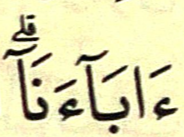 ءَابَآءَنَآۗ